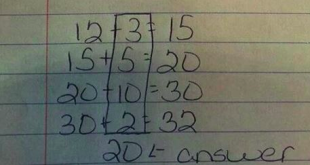 12+3=15
15+5=20
20+10=30
30+2=32
20 ← answer